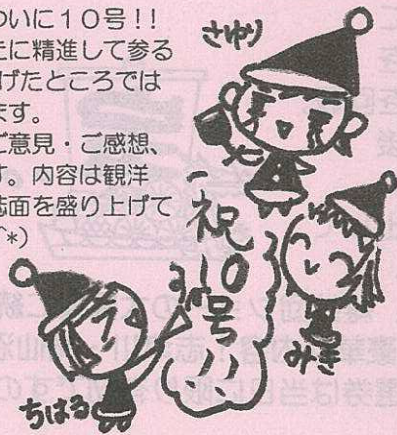 ついに10号!!
に精進して参る
げたところでは
ます。
ご意見・ご感想、
す。内容は観洋
誌面を盛り上げて
*)
さゆり
祝
10
号!!
みき
ちはる